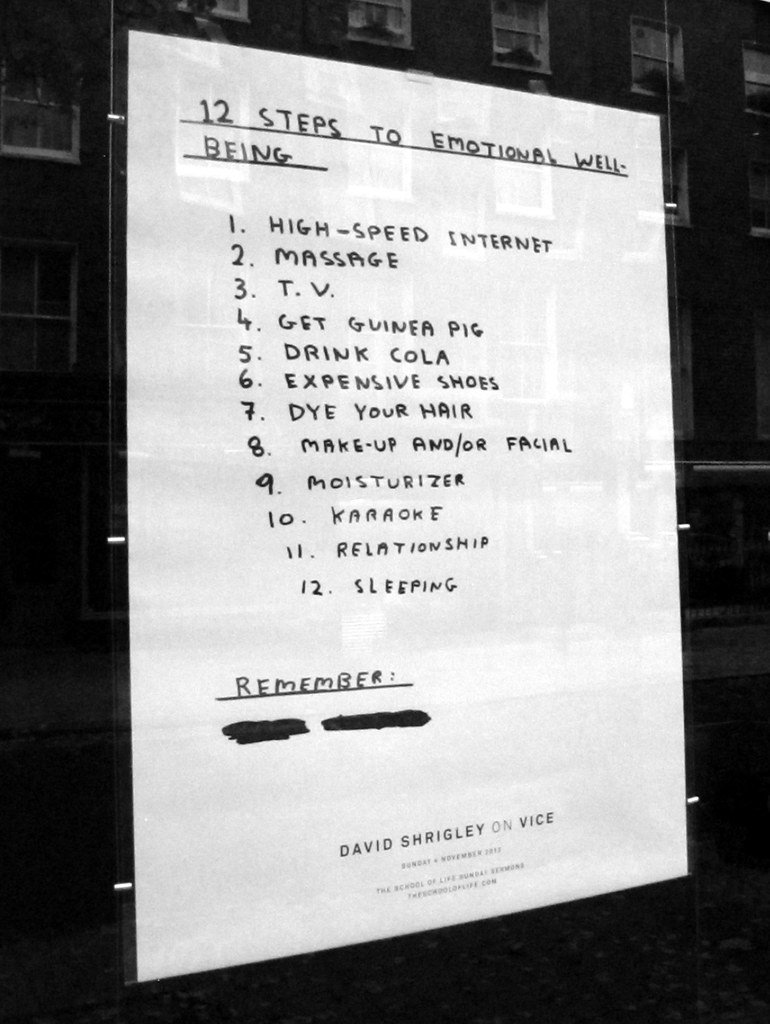 12 STEPS TO EMOTIONAL WELL-
BEING
1. HIGH-SPEED INTERNET
2. MASSAGE
3. T.V.
4. GET GUINEA PIG
5. DRINK COLA
6. EXPENSIVE SHOES
7. DYE YOUR HAIR
8. MAKE-UP AND/OR FACIAL
9. MOISTURIZER
10. KARAOKE
11. RELATIONSHIP
12. SLEEPING
REMEMBER:
DAVID SHRIGLEY ON VICE
SUNDAY 4 NOVEMBER 2012
THE SCHOOL OF LIFE SUNDAY SERMONS
THESCHOOLOFLIFE.COM